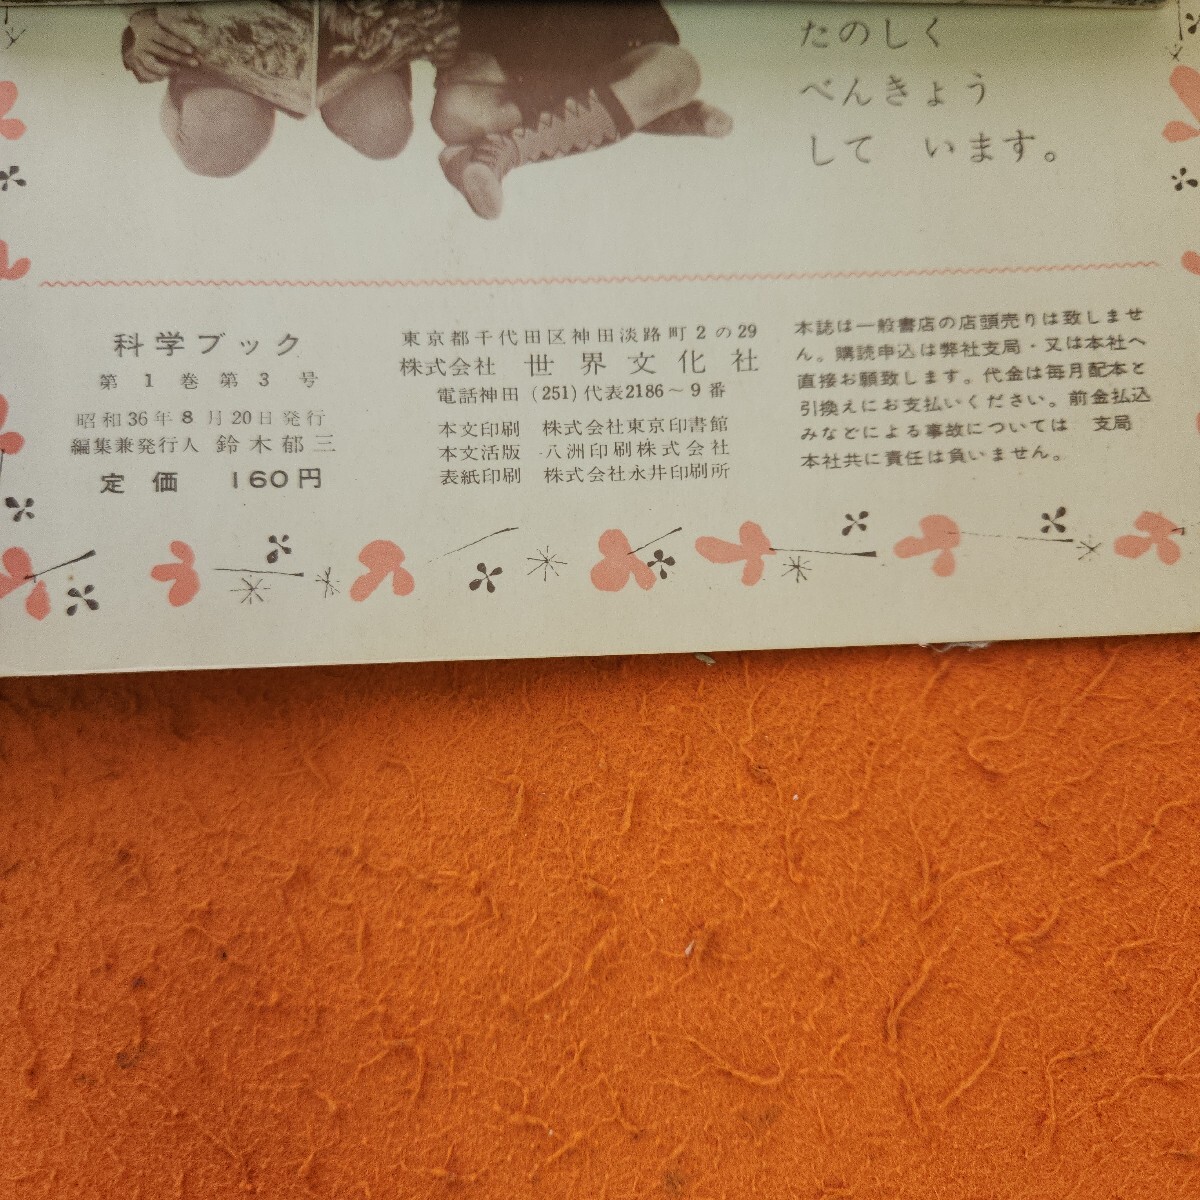 たのしく
べんきょう
して　います。
科学ブック
第1巻第3号
昭和36年8月20日発行
編集兼発行人 鈴木郁三
定価 160円
東京都千代田区神田淡路町2の29
株式会社 世界文化社
電話神田 (251)代表2186～9番
本文印刷 株式会社東京印書館
本文活版 八洲印刷株式会社
表紙印刷 株式会社永井印刷所
本誌は一般書店の店頭売りは致しませ
ん。購読申込は弊社支局・又は本社へ
直接お願致します。代金は毎月配本と
引換えにお支払いください。前金払込
みなどによる事故については　支局
本社共に責任は負いません。